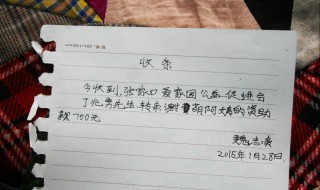 收条
今收到,张家口爱家园公益促进会
丁兆亮先生转来谢胡阿姨的资助
款700元
2015年1月28日